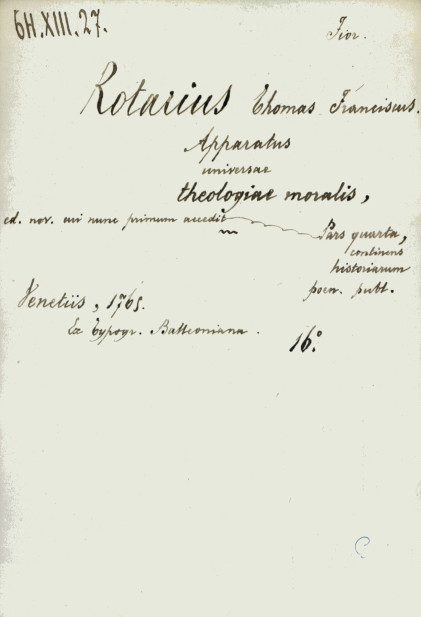 6H.XIII.27.
Fior.
Rotarius Thomas Franciscus.
Apparatus
universae
theologiae moralis,
ed. nov. cui nunc primum accedit
Pars quarta,
continens
historiarum
poen. publ.
Venetiis, 1765.
Ex typogr. Balleoniana.
16°.